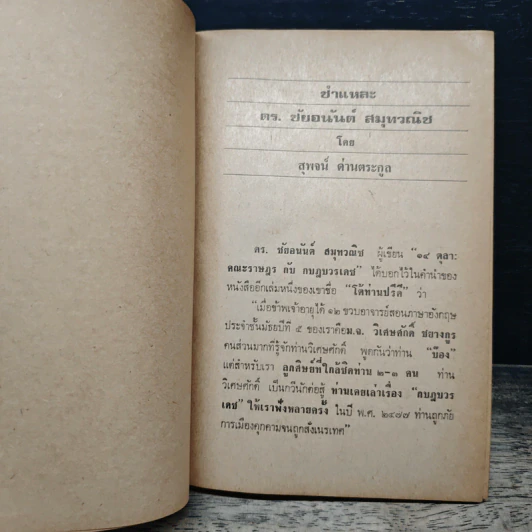 ชำแหละ
ดร. ชัยอนันต์ สมุทวณิช
โดย
สุพจน์ ด่านตระกูล
ดร. ชัยอนันต์ สมุทวณิช ผู้เขียน "๑๔ ตุลา:
คณะราษฎร กับ กบฏบวรเดช" ได้บอกไว้ในคำนำของ
หนังสืออีกเล่มหนึ่งของเขาชื่อ "โต้ท่านปรีดี" ว่า
"เมื่อข้าพเจ้าอายุได้ ๑๒ ขวบอาจารย์สอนภาษาอังกฤษ
ประจำชั้นมัธยปีที่ ๕ ของเราคือม.จ. วิเศษศักดิ์ ชยางกูร
คนส่วนมากที่รู้จักท่านวิเศษศักดิ์ พูดกันว่าท่าน "บ๊อง"
แต่สำหรับเรา ลูกศิษย์ที่ใกล้ชิดท่าน ๒-๓ คน ท่าน
วิเศษศักดิ์ เป็นกวีนักต่อสู้ ท่านเคยเล่าเรื่อง "กบฏบวร
เดช" ให้เราฟังหลายครั้ง ในปี พ.ศ. ๒๔๗๗ ท่านถูกภัย
การเมืองคุกคามจนถูกสั่งเนรเทศ"